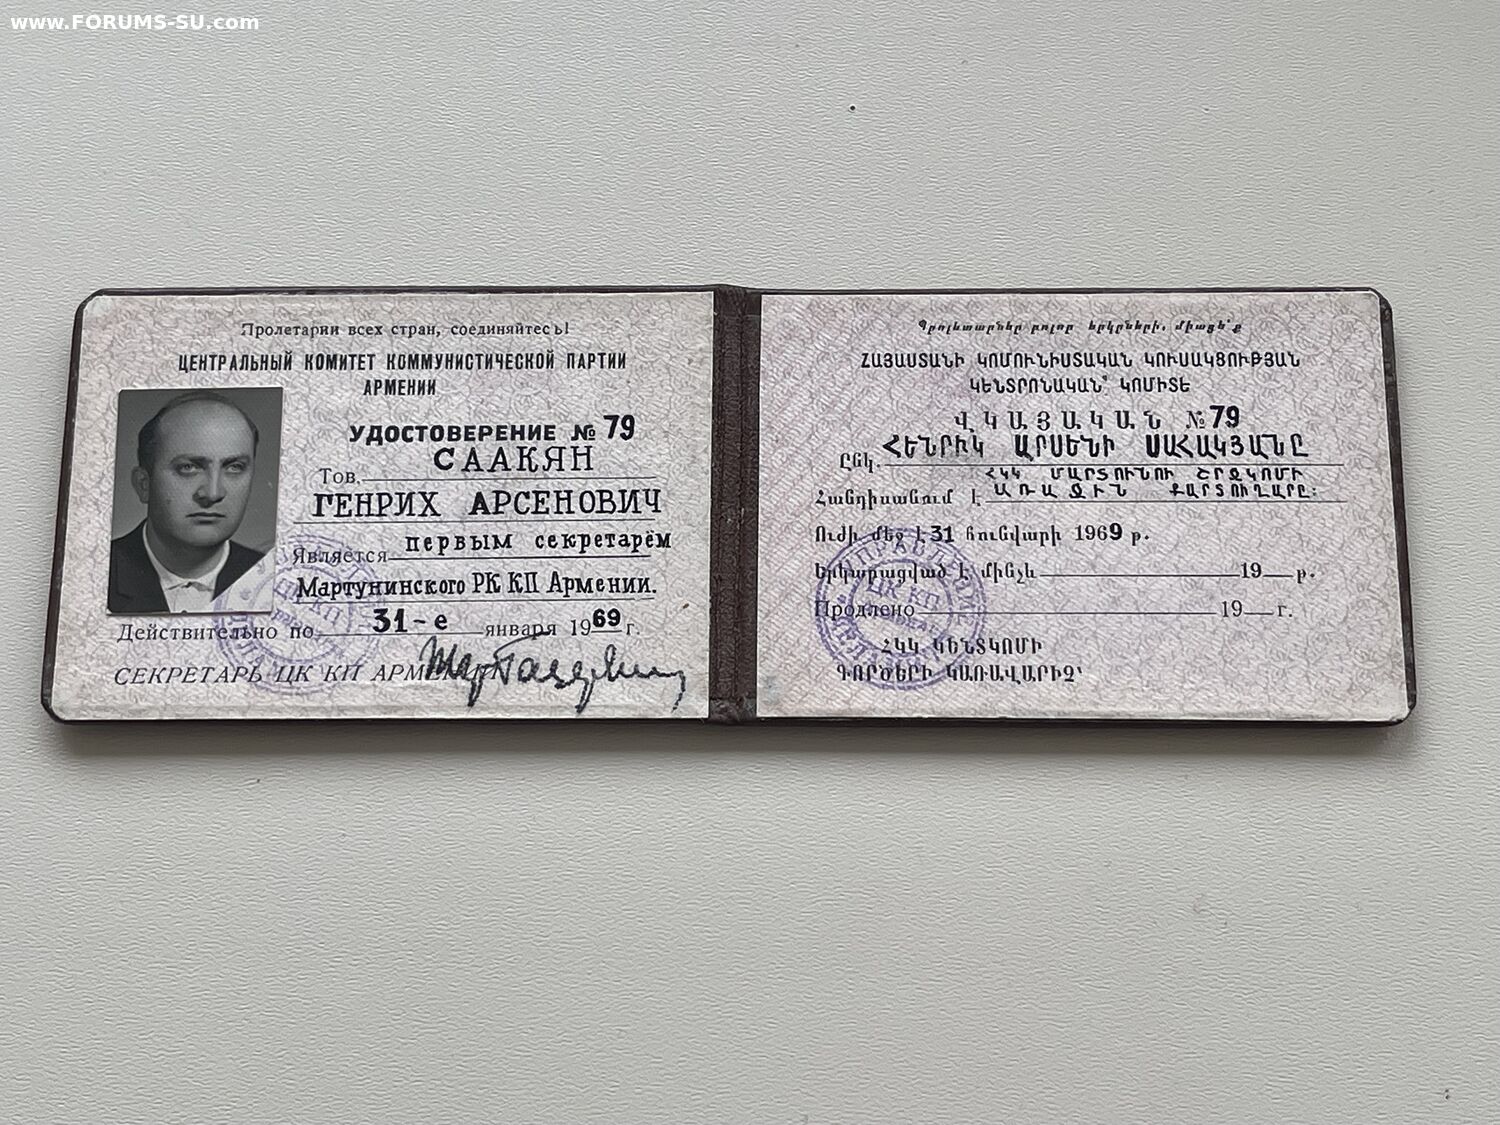 www.FORUMS-SU.com
Пролетарии всех стран, соединяйтесь!
ЦЕНТРАЛЬНЫЙ КОМИТЕТ КОММУНИСТИЧЕСКОЙ ПАРТИИ
АРМЕНИИ
УДОСТОВЕРЕНИЕ № 79
Тов. СААКЯН
ГЕНРИХ АРСЕНОВИЧ
Является первым секретарём
Мартунинского РК КП Армении.
Действительно по 31-е января 1969 г.
СЕКРЕТАРЬ ЦК КП АРМЕНИИ
Պրոլետարներ բոլոր երկրների, միացե՛ք
ՀԱՅԱՍՏԱՆԻ ԿՈՄՈՒՆԻՍՏԱԿԱՆ ԿՈՒՍԱԿՑՈՒԹՅԱՆ
ԿԵՆՏՐՈՆԱԿԱՆ ԿՈՄԻՏԵ
ՎԿԱՅԱԿԱՆ № 79
Ընկ. ՀԵՆՐԻԿ ԱՐՍԵՆԻ ՍԱՀԱԿՅԱՆԸ
ՀԿԿ ՄԱՐՏՈՒՆՈՒ ՇՐՋԿՈՄԻ
Հանդիսանում է ԱՌԱՋԻՆ ՔԱՐՏՈՒՂԱՐԸ:
Ուժի մեջ է 31 հունվարի 1969 թ.
Երկարացված է մինչև 19 թ.
Продлено 19 г.
ՀԿԿ ԿԵՆՏԿՈՄԻ
ԳՈՐԾԵՐԻ ԿԱՌԱՎԱՐԻՉ՝